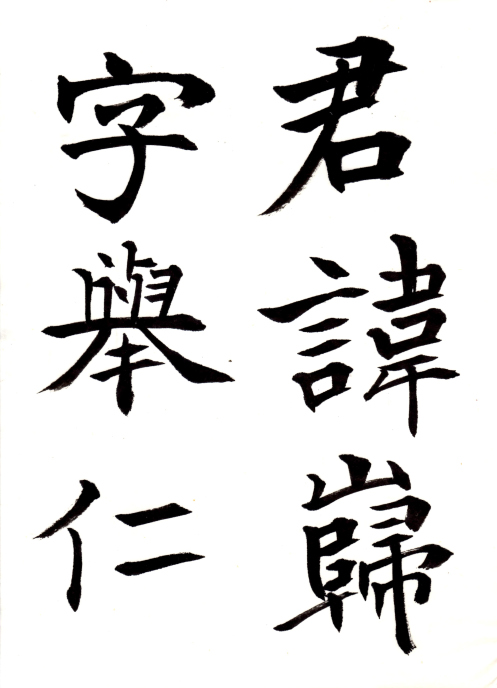 君諱巋
字舉仁